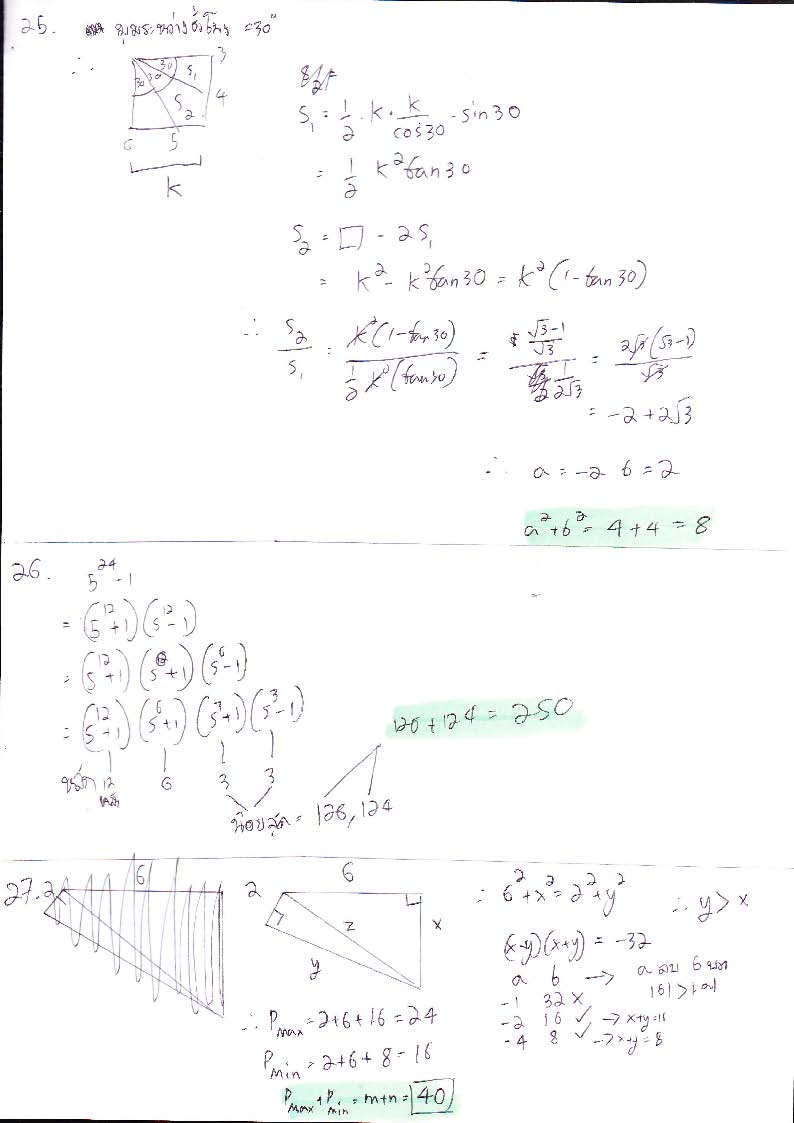 25. มุมระหว่างชั่วโมง = 30°
∴
3
30
30
30
S₁
S₂
4
6 5
k
S₁ = 1/2 · k · k/cos30 · sin30
= 1/2 k² tan30
S₂ = □ - 2S₁
= k² - k² tan30 = k² (1 - tan30)
∴ S₂/S₁ = k²(1 - tan30) / 1/2 k²(tan30) = (√3-1)/√3 / 1/(2√3) = 2√3(√3-1)/√3
= -2 + 2√3
∴ a = -2 b = 2
a² + b² = 4 + 4 = 8
26. 5²⁴ - 1
= (5¹² + 1)(5¹² - 1)
= (5¹² + 1)(5⁶ + 1)(5⁶ - 1)
= (5¹² + 1)(5⁶ + 1)(5³ + 1)(5³ - 1)
12 6 3 3
หลัก
น้อยสุด = 126, 124
126 + 124 = 250
27. 2 6
2 6
z x
y
∴ 6² + x² = 2² + y² ∴ y > x
(x-y)(x+y) = -32
a b → a ลบ b บวก
|b| > |a|
-1 32 ×
-2 16 ✓ → x+y = 16
-4 8 ✓ → x+y = 8
∴ Pmax = 2+6+16 = 24
Pmin = 2+6+8 = 16
Pmax + Pmin = m+n = 40